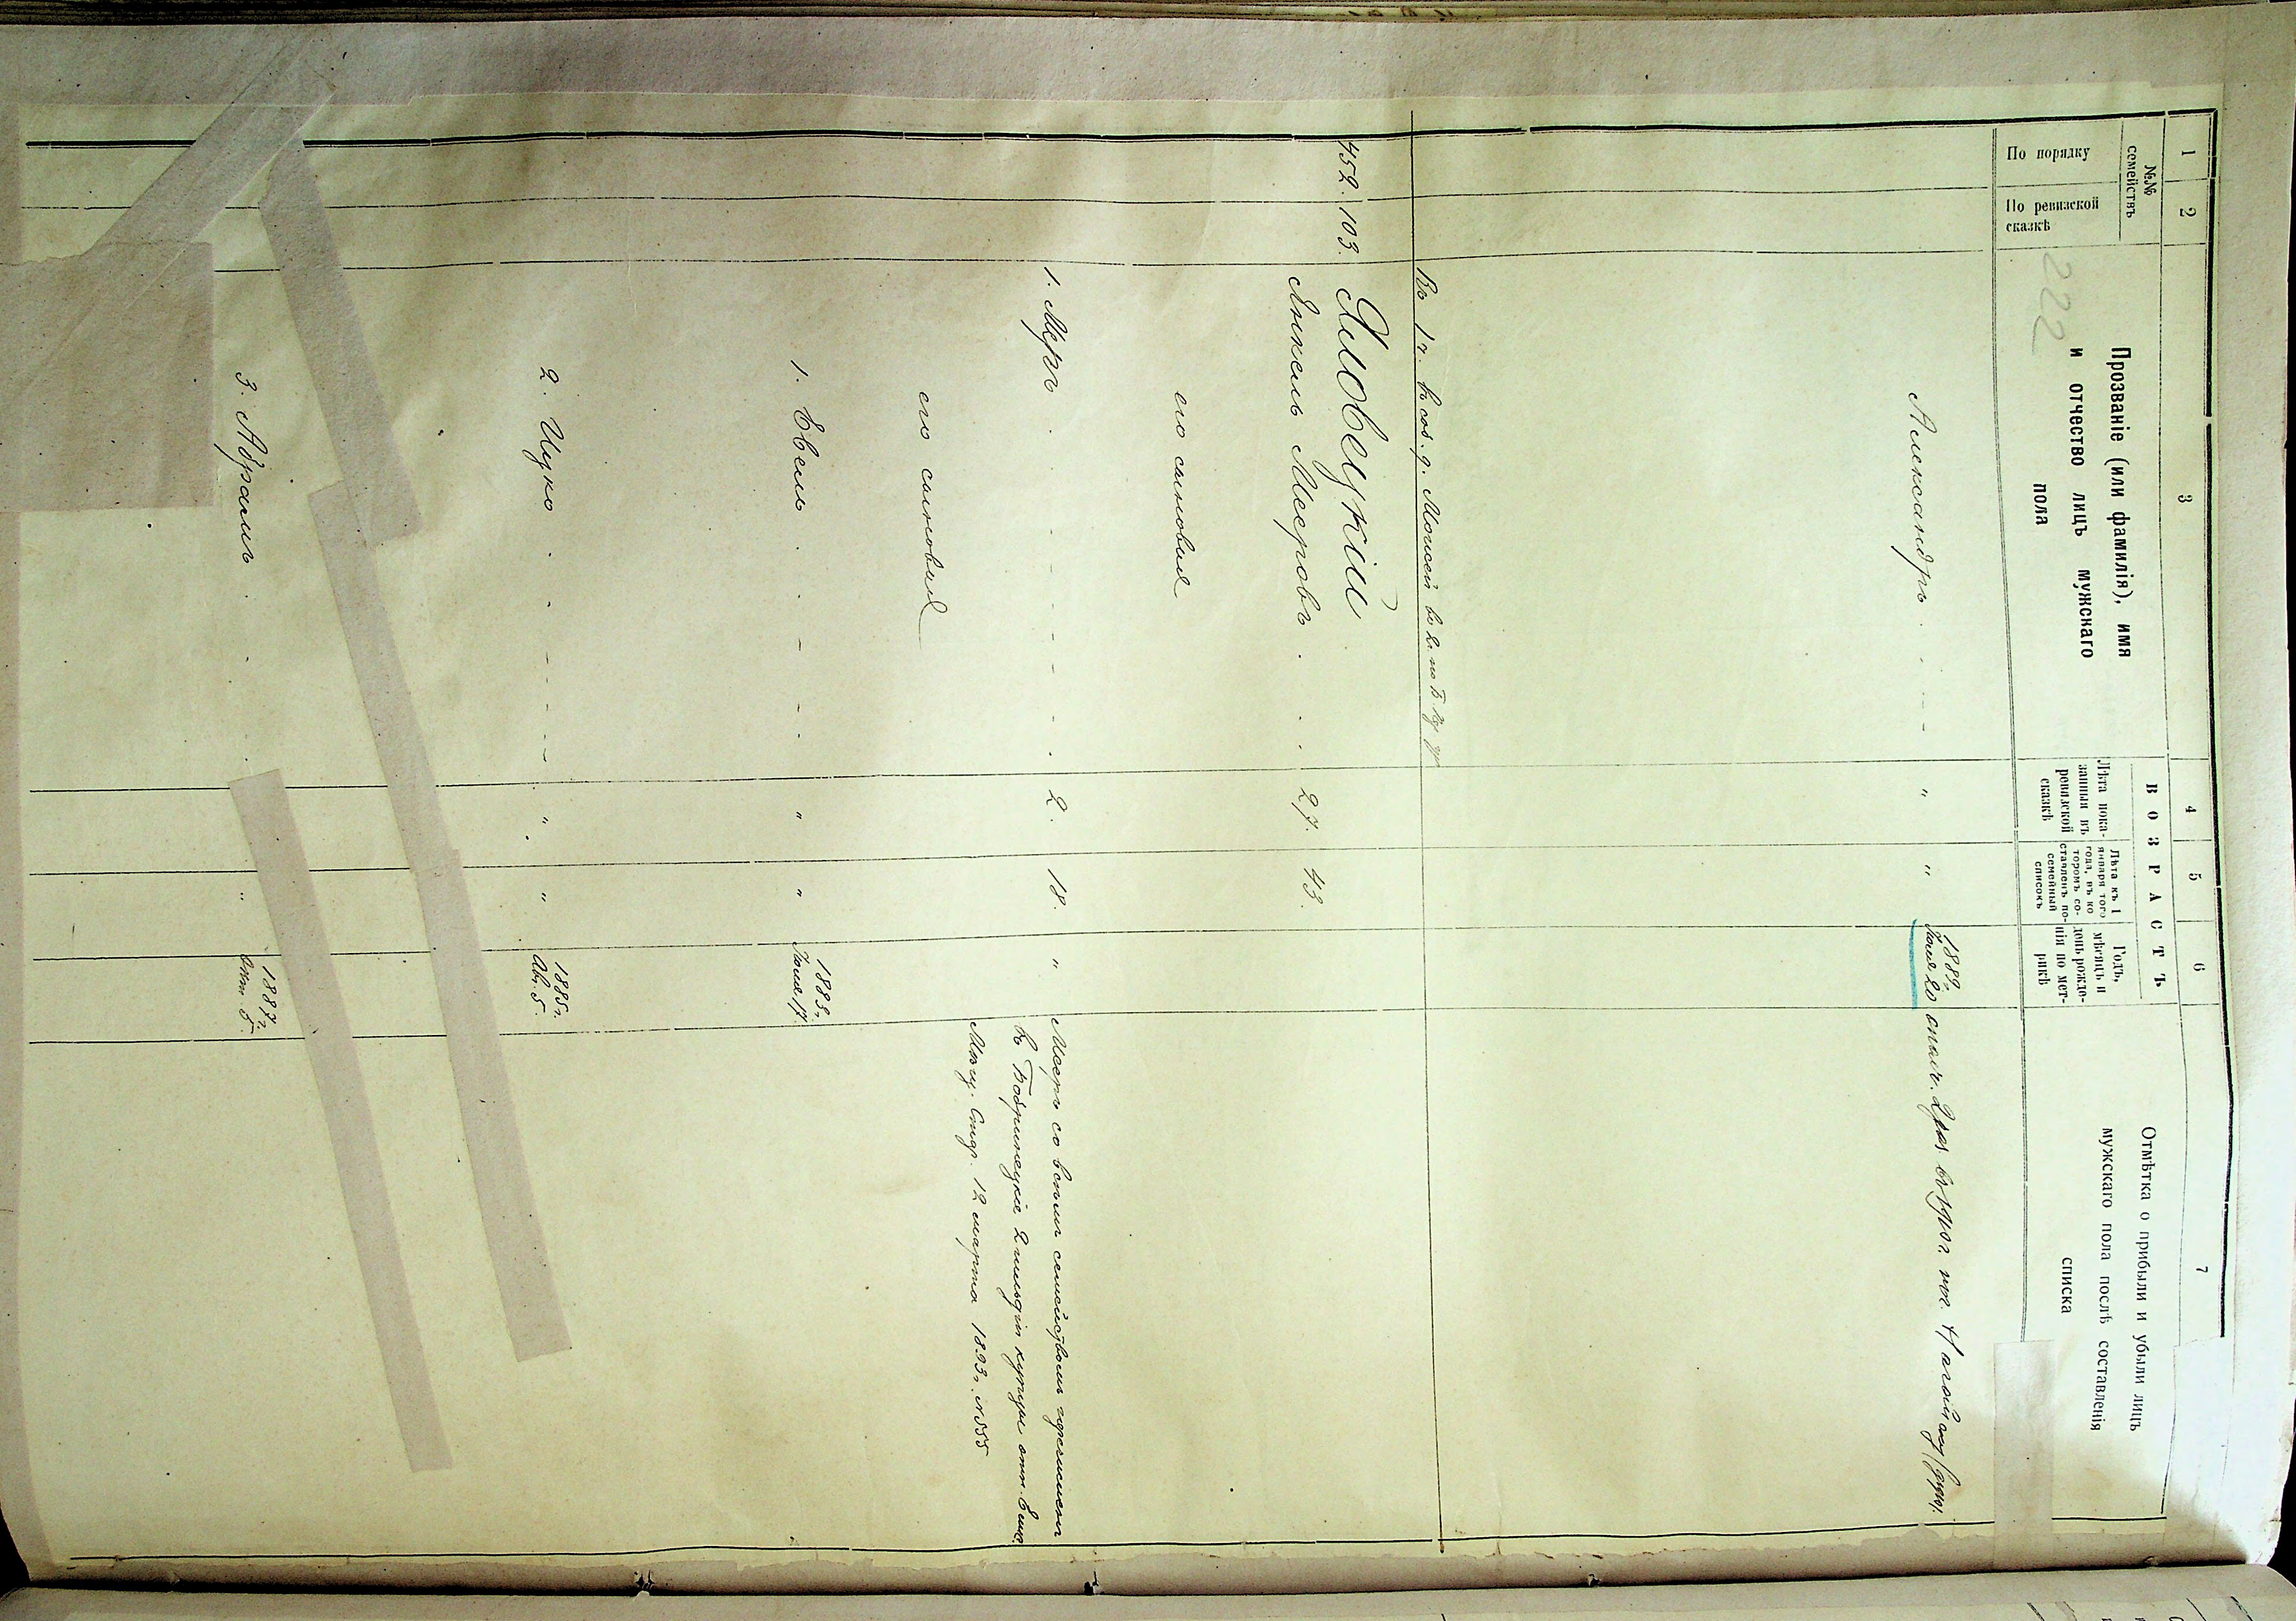 1 2 3 4 5 6 7
№№ семействъ
По порядку
По ревизской сказкѣ
Прозваніе (или фамилія), имя
и отчество лицъ мужскаго
пола
222
ВОЗРАСТЪ
Лѣта пока-
занныя въ
ревизской
сказкѣ
Лѣта къ 1
января того
года, въ ко
торомъ со-
ставленъ по-
семейный
списокъ
Годъ,
мѣсяцъ и
день рожде-
нія по мет-
рикѣ
Отмѣтка о прибыли и убыли лицъ
мужскаго пола послѣ составленія
списка
Александръ . . - - " " 1889г.
Іюля 20
452. 103. Хмовецкій
Янкель Мееровъ . . . 27. 43.
его сыновья
1. Меръ . . - - - . 2. 18. "
Мееръ со всѣмъ семействомъ перечисленъ
въ Бобринецкіе 2 гильдіи купцы отн.
Мѣщ. Стар. 12 марта 1893г. №555
его сыновья
1. Евель . . - - . " " 1883г.
Іюля 17.
2. Ицко . . - - - " " 1885г.
Ав. 5.
3. Абрамъ . . . " 1887г.
Окт. 5.